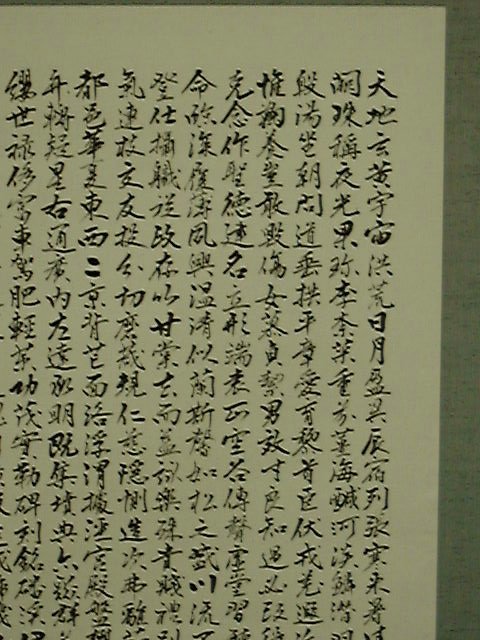 天地玄黃宇宙洪荒日月盈昃辰宿列張寒來暑
闕珠稱夜光果珍李柰菜重芥薑海鹹河淡鱗潛羽
殷湯坐朝問道垂拱平章愛育黎首臣伏戎羌遐
惟鞠養豈敢毀傷女慕貞絜男效才良知過必改得
克念作聖德建名立形端表正空谷傳聲虛堂習聽
命臨深履薄夙興溫凊似蘭斯馨如松之盛川流不
登仕攝職從政存以甘棠去而益詠樂殊貴賤禮別
氣連枝交友投分切磨箴規仁慈隱惻造次弗離節
都邑華夏東西二京背芒面洛浮渭據涇宮殿盤鬱
弁轉疑星右通廣內左達承明既集墳典亦聚群
纓世祿侈富車駕肥輕策功茂實勒碑刻銘磻溪伊